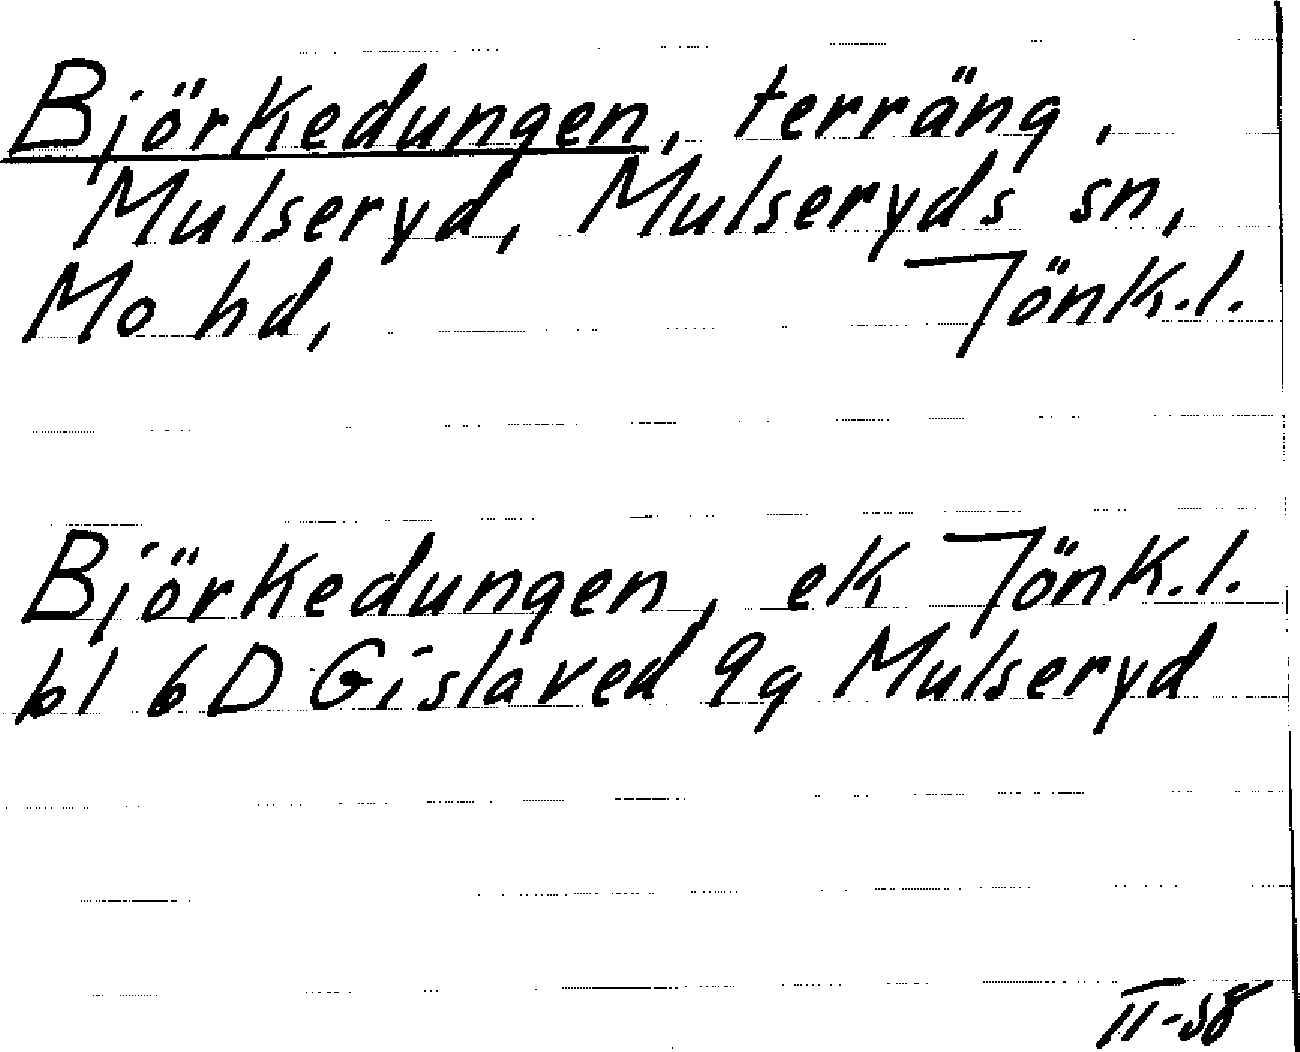 Björkedungen, terräng,
Mulseryd, Mulseryds sn,
Mo hd, Jönk.l.
Björkedungen, ek Jönk.l.
bl 6D Gislaved 9g Mulseryd
II-58